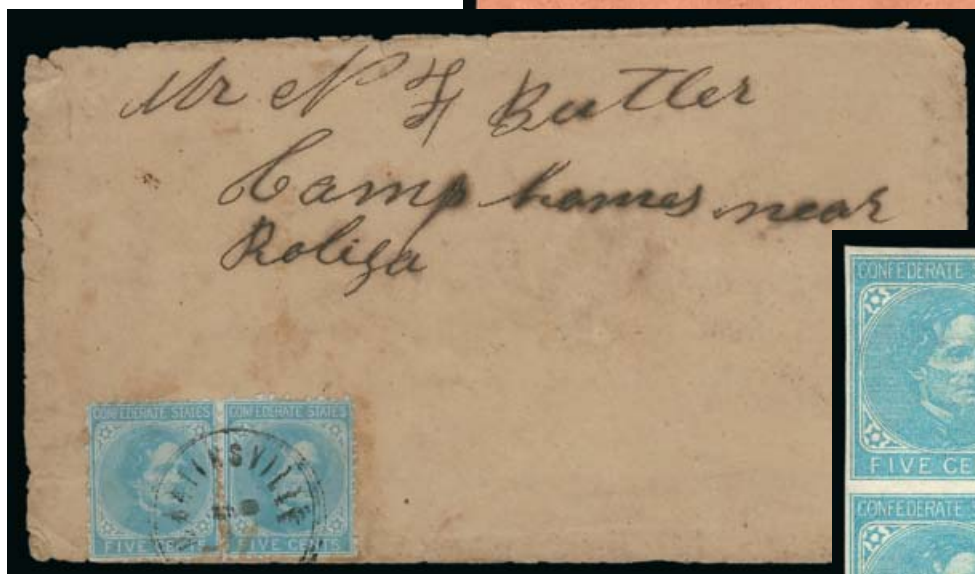 Mr N F Butler
Camp homes near
Roliga
CONFEDERATE STATES CONFEDERATE STATES
FIVE CENTS FIVE CENTS
CONFEDERATE
FIVE
CONFEDERATE